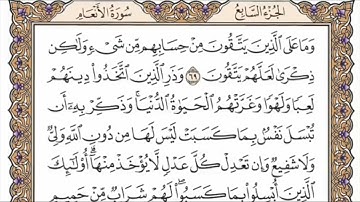 الجزء السابع سورة الأنعام
وَمَا عَلَى ٱلَّذِينَ يَتَّقُونَ مِنْ حِسَابِهِم مِّن شَىْءٍ وَلَٰكِن
ذِكْرَىٰ لَعَلَّهُمْ يَتَّقُونَ ٦٩ وَذَرِ ٱلَّذِينَ ٱتَّخَذُوا۟ دِينَهُمْ
لَعِبًا وَلَهْوًا وَغَرَّتْهُمُ ٱلْحَيَوٰةُ ٱلدُّنْيَا ۚ وَذَكِّرْ بِهِۦٓ أَن
تُبْسَلَ نَفْسٌۢ بِمَا كَسَبَتْ لَيْسَ لَهَا مِن دُونِ ٱللَّهِ وَلِىٌّ
وَلَا شَفِيعٌ وَإِن تَعْدِلْ كُلَّ عَدْلٍ لَّا يُؤْخَذْ مِنْهَآ ۗ أُو۟لَٰٓئِكَ
ٱلَّذِينَ أُبْسِلُوا۟ بِمَا كَسَبُوا۟ ۖ لَهُمْ شَرَابٌ مِّنْ حَمِيمٍ